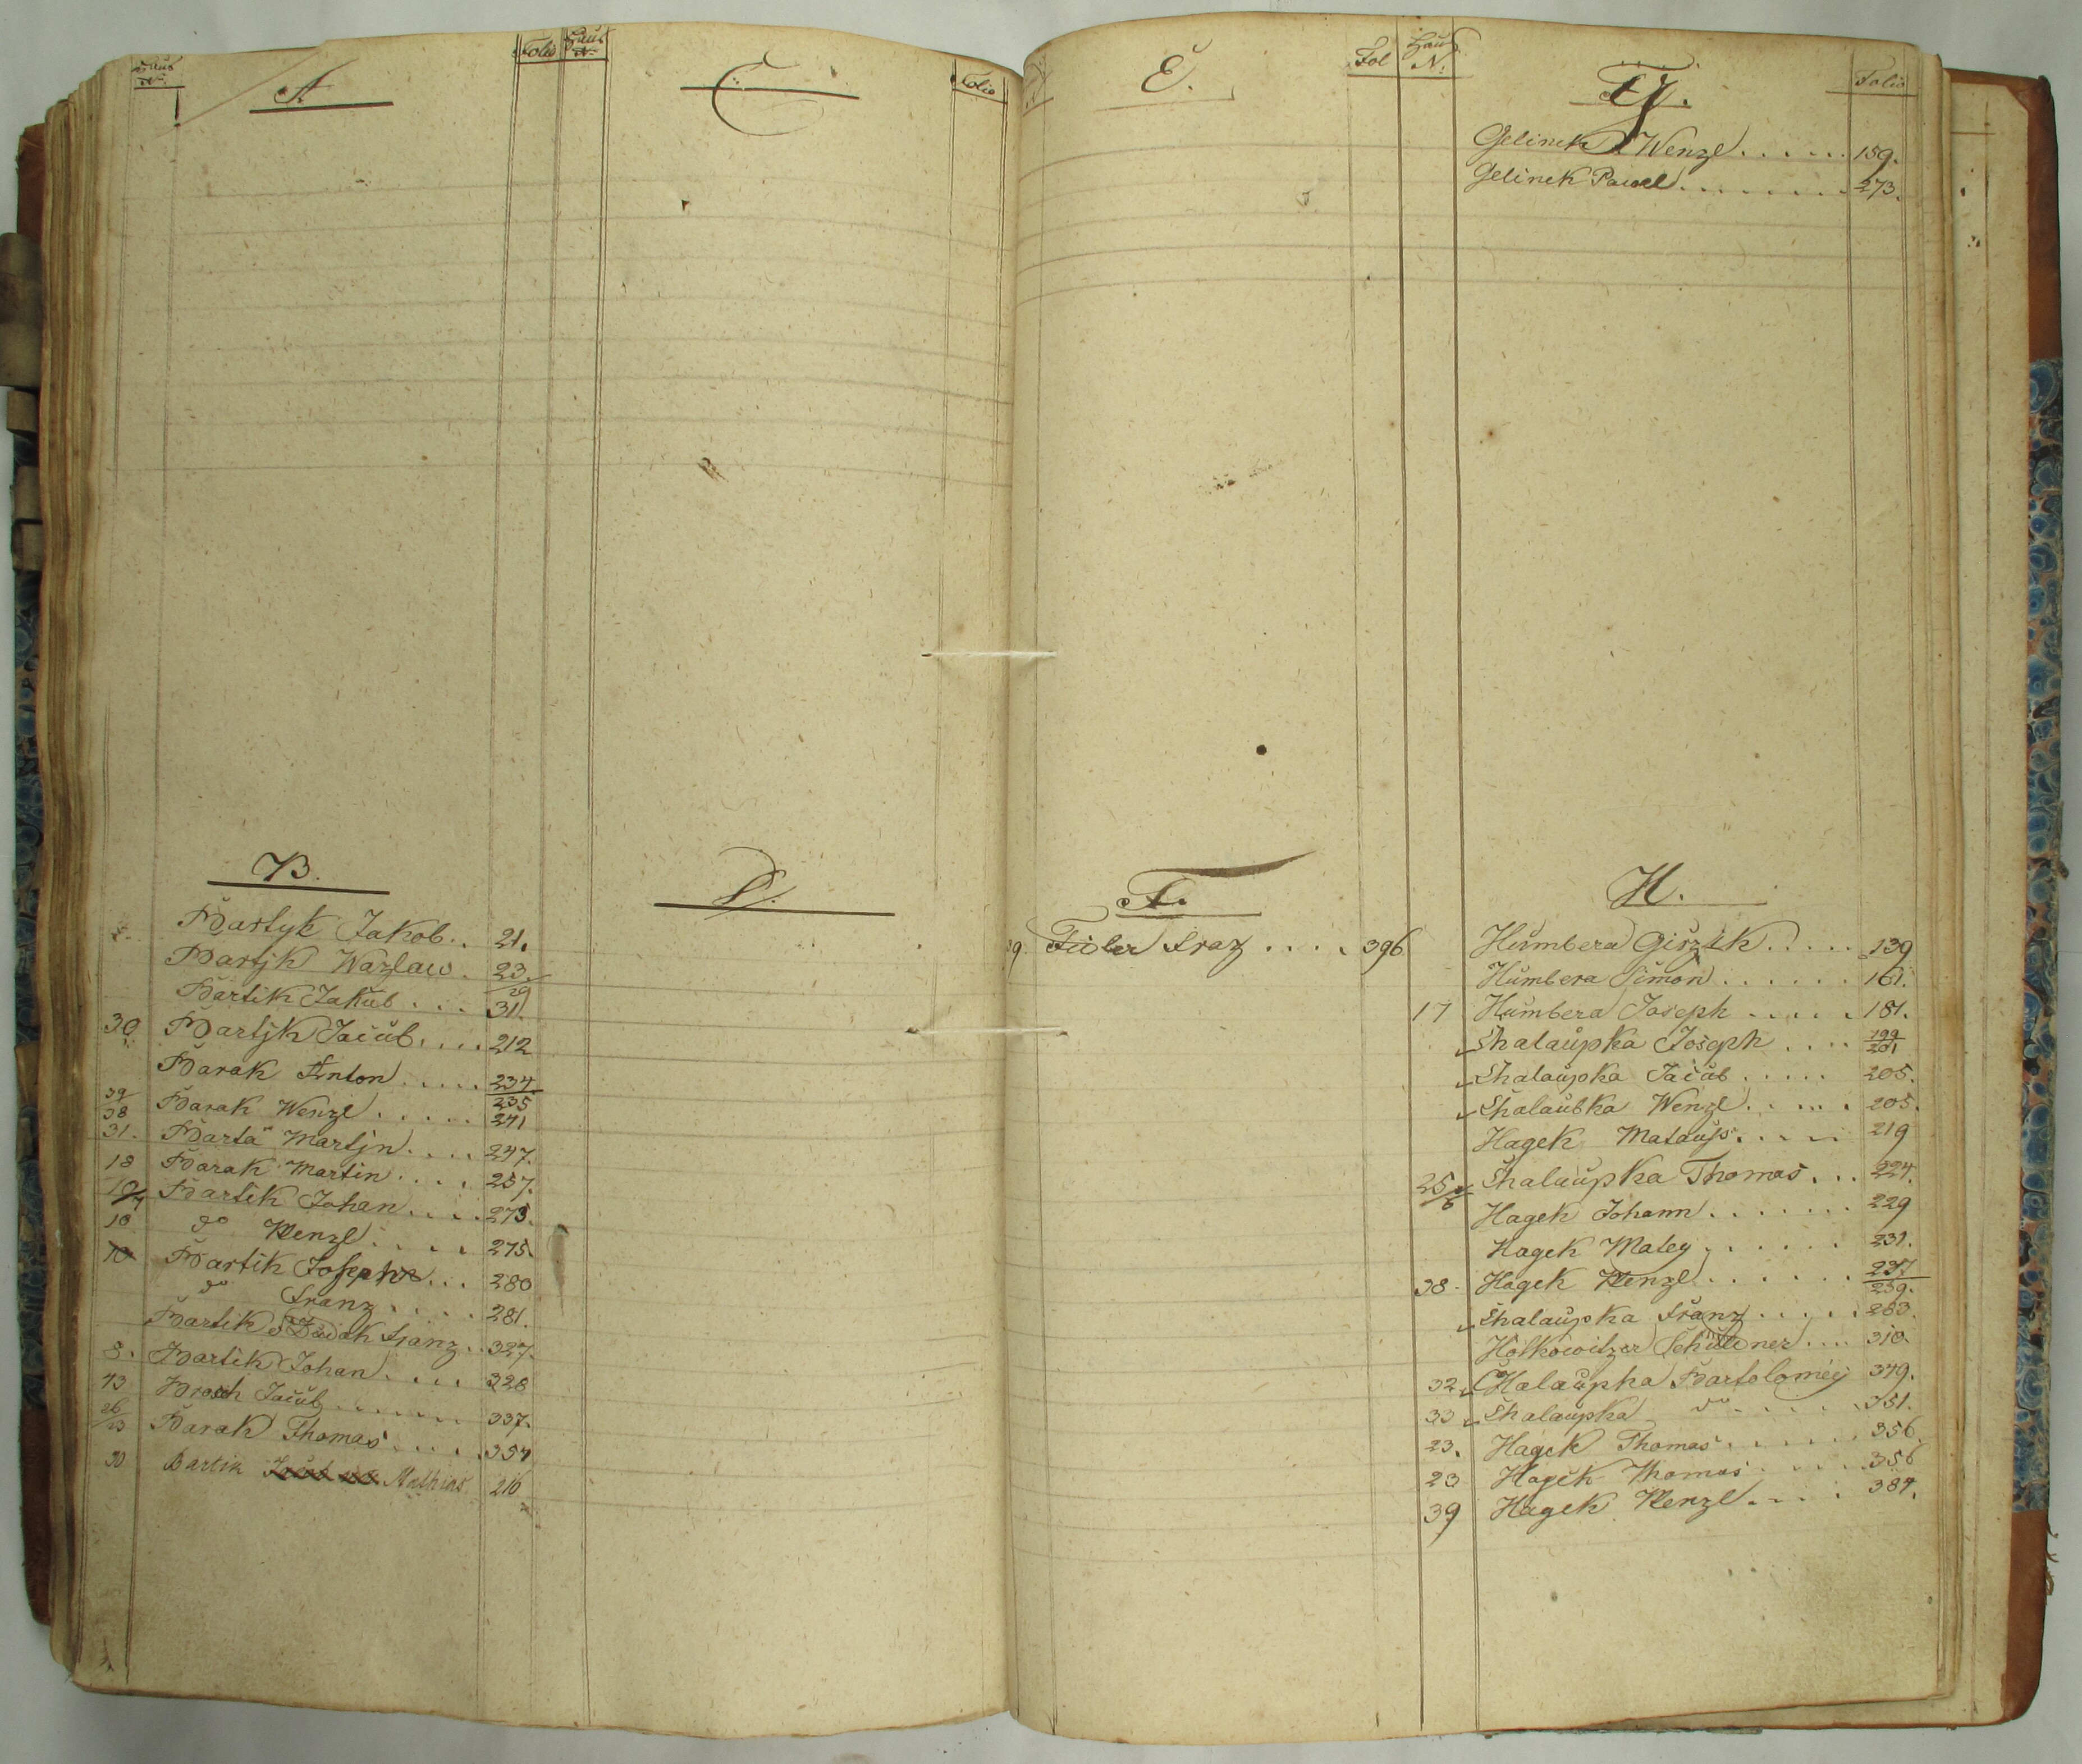 Haus N. A Folio
B.
Bartyk Jakob . . 21.
Bartjk Wazlaw . 23/29
Bartik Jakub . . . 31.
30 Bartjk Jacub . . . . 212
Barak Anton . . . . . 234/235
39/38 Barak Wenzl . . . . . 241
31. Barta Martjn . . . . 247.
18 Barak Martin . . . . 257.
Bartik Johan . . . . 273.
10 do Wenzl . . . . 275.
10 Bartik Joseph . . . 280
do Franz . . . . 281.
Bartik Franz . . 327.
8. Bartik Johan . . . . 328
13 Jacub . . . . . . . 337.
26/23 Barak Thomas . . . . 354
30 Bartik Mathias 216
Haus N. C Folio
D.
E. Fol
F.
39. Fidler Fraz . . . . 396
Haus N. G. Folio
Gelinek Wenzl . . . . . . 159.
Gelinek Pawel . . . . . . . . 273.
H.
Humbera Girzik . . . . . 139
Humbera Simon . . . . . . 161.
17 Humbera Joseph . . . . . 181.
Chalaupka Joseph . . . . 199/201
Chalaupka Jacub . . . . . 205.
Chalaubka Wenzl . . . . . 205.
Hagek Matauss . . . . . 219
25/6 Chalaupka Thomas . . . 224.
Hagek Johann . . . . . . . 229
Hagek Matey . . . . . . 231.
38. Hagek Wenzl . . . . . . 237./239.
Chalaupka Franz . . . . . 283.
Holkowitzer Schuldner . . . . 310.
32. Chalaupka Bartolomey 349.
33 Chalaupka do . . . . . 351.
23. Hagek Thomas . . . . . . 356.
23 Hagek Thomas . . . . . 356
39 Hagek Wenzl . . . . 384.